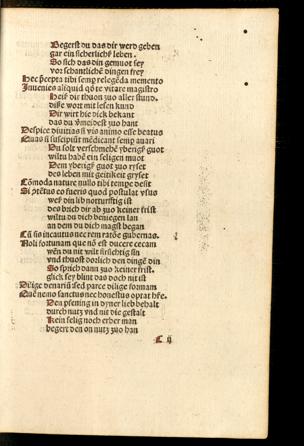 Begerst du das dir werd geben
gar ein sicherlichs leben.
So sich das din gemuot sey
vor schantlichē dingen frey
Hec p̄cepta tibi semp relegēda memento
Invenies aliquid qd̄ te vitare magistro
Heiß dir thuon zuo aller stund.
disse wort mit lesen kund
Dir wirt hie dick bekant
das du v̄meidest zuo hant
Despice divitias si vis animo esse beatus
Quas q̄ suscipiūt mēdicant semp avari
Du solt verschmehē yberigs guot
wiltu habē ein seligen muot
Dem yberigs guot zuo ryset
des leben mit geitikeit gryset
Cōmoda nature nullo tibi tempe desūt
Si p̄tētus eo fueris quod postulat ysus
weß din lib notturfftig ist
des bricht dir ab zuo keiner frist
wiltu du dich benüegen lan
an dem du dich magst began
Cū sis incautus nec rem ratōe gubernas.
Noli fortunam que nō est dicere cecam
wēn du nit wilt fürsichtig sin
vnd thuost dorlich den dingē din
So sprich dann zuo keiner frist.
glich sey blint das doch nit ist
Dilige denariū sed parce dilige formam
Quē nemo sanctus nec honestus optat hr̄e.
Den pfening in dyner lieb behalt
durch nutz vnd nit die gestalt
Kein selig noch erber man
begert den on nutz zuo han
C ij